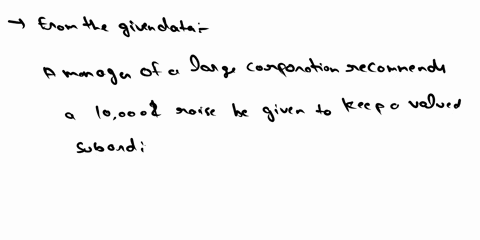 → From the given data:-
A manager of a large corporation recommends
a 10,000$ raise be given to keep a valued
subordi